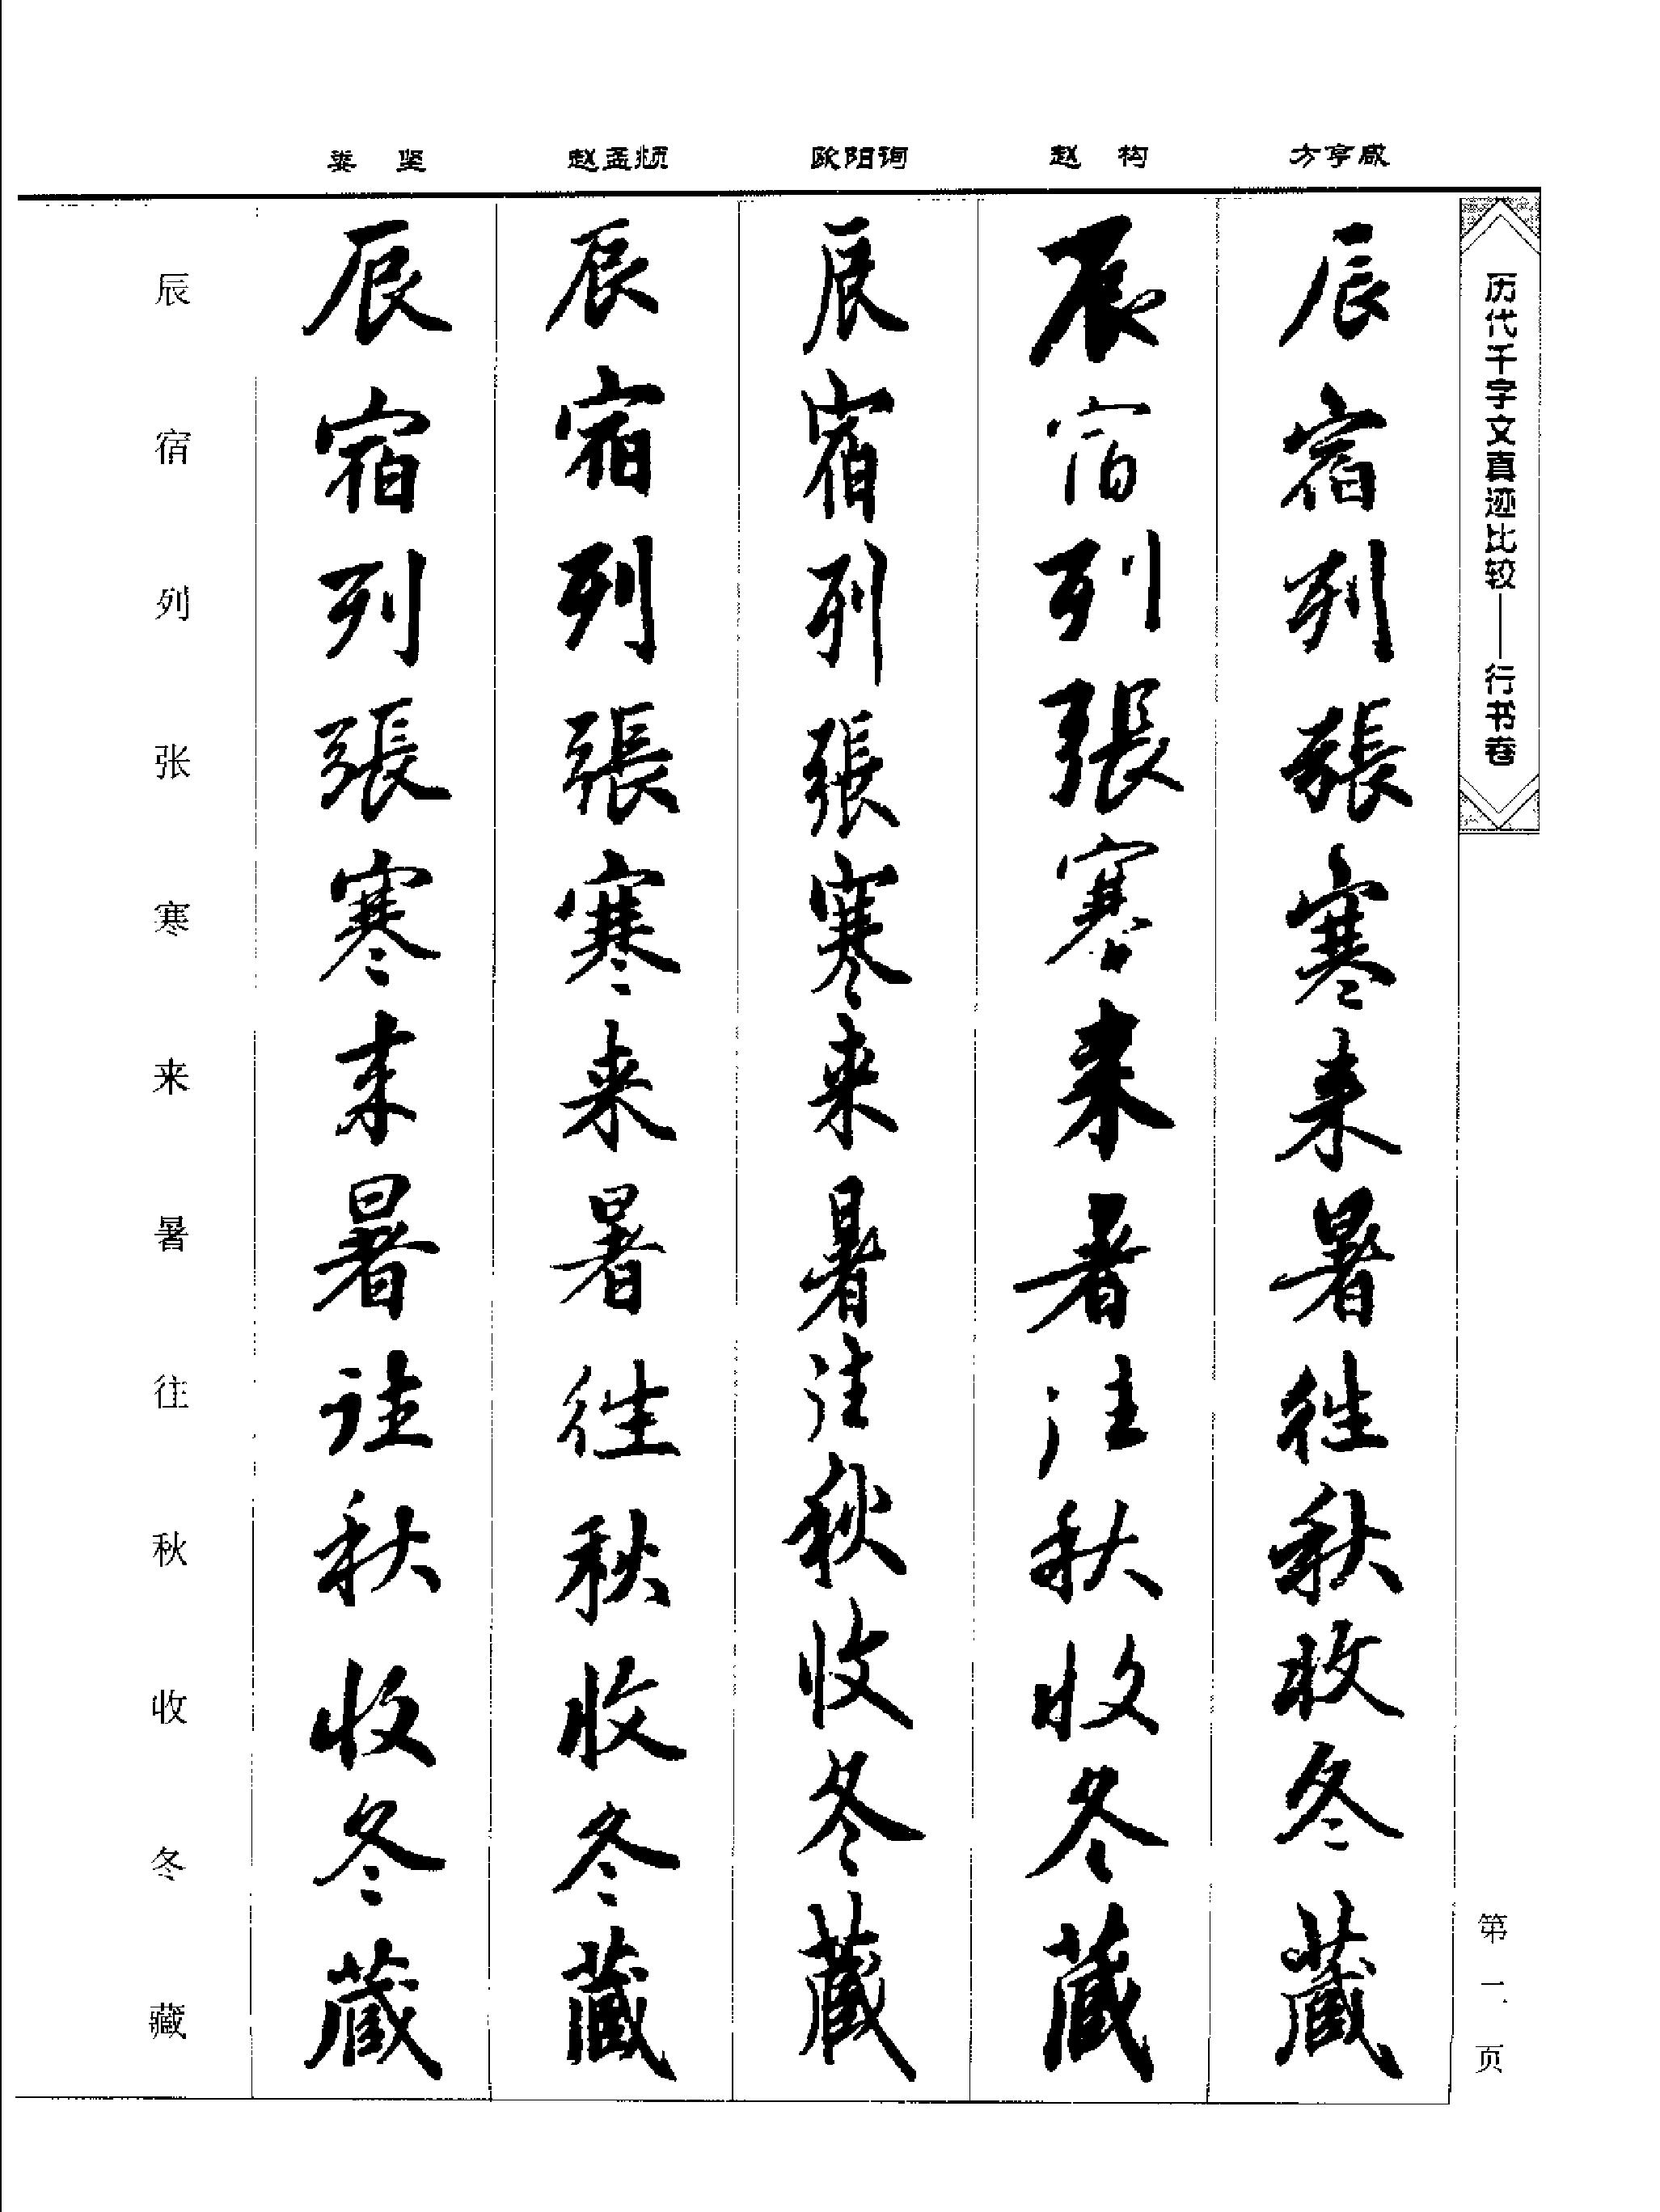 历代千字文真迹比较——行书卷
第一页
方亨咸
辰宿列張寒来暑徃秋收冬藏
赵构
辰宿列張寒来暑往秋收冬藏
欧阳询
辰宿列張寒来暑往秋收冬藏
赵孟頫
辰宿列張寒来暑徃秋收冬藏
娄坚
辰宿列張寒来暑往秋收冬藏
辰宿列张寒来暑往秋收冬藏